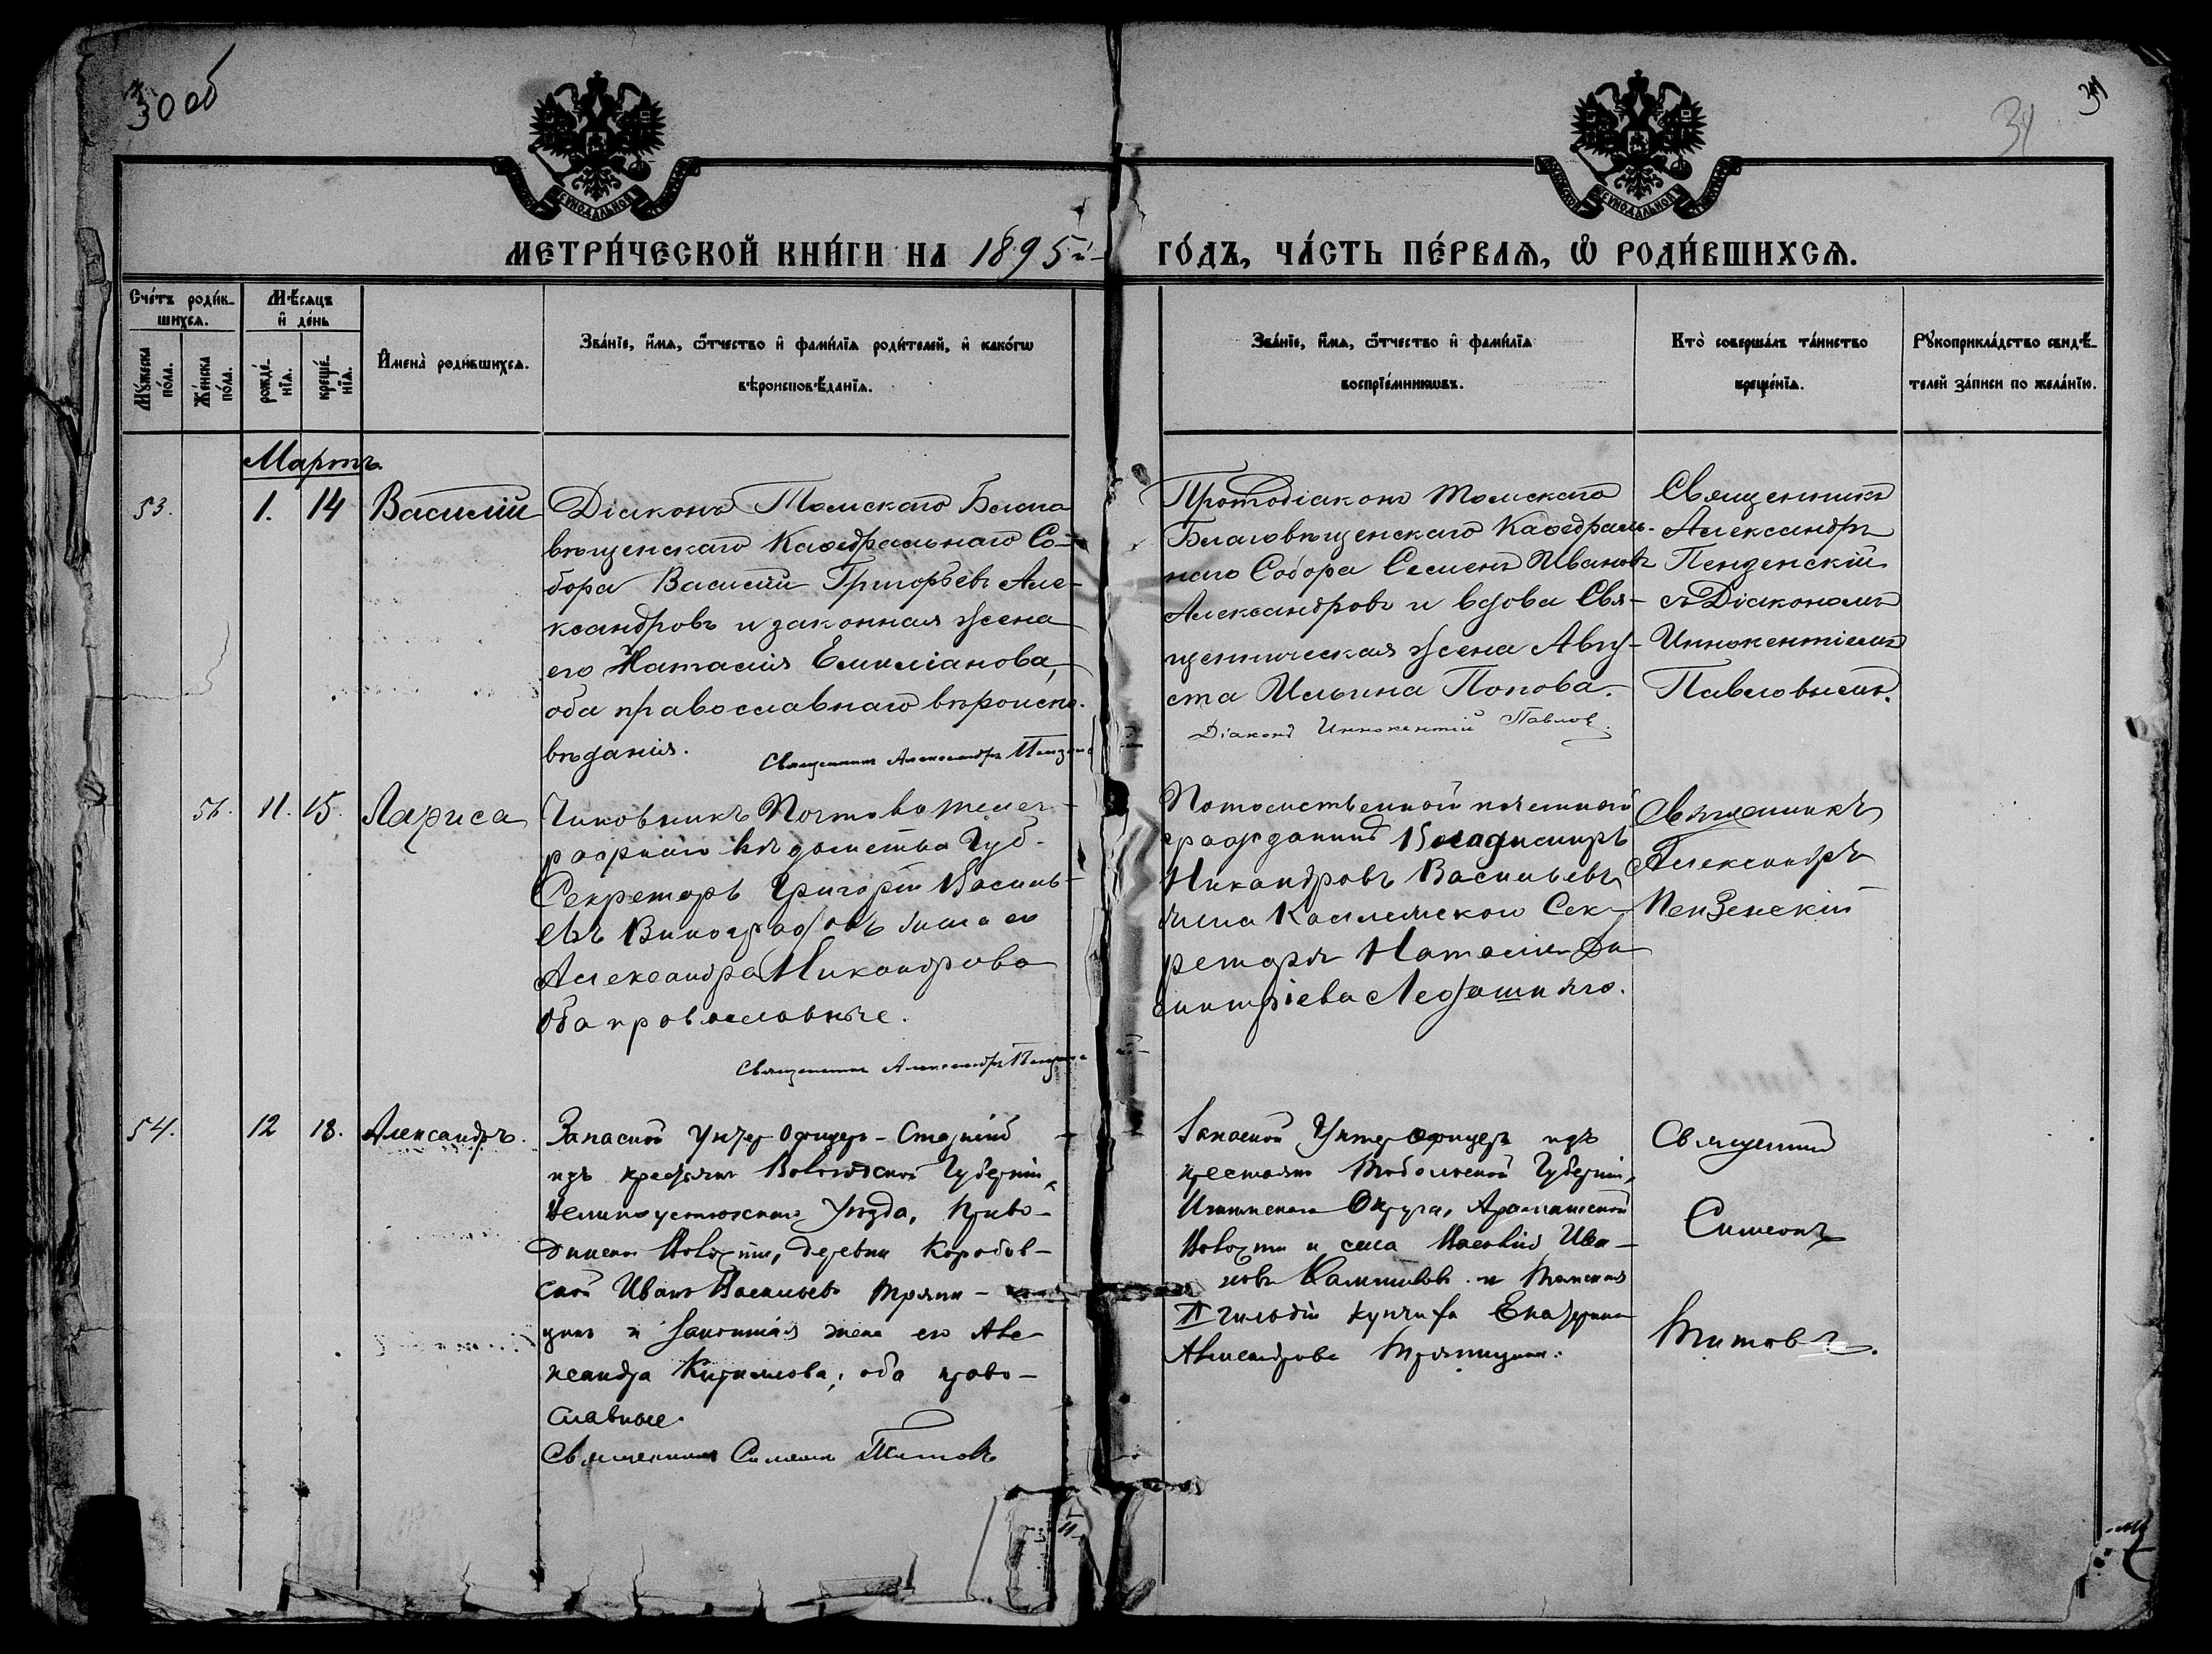 30 об
31
31
СѴНОДАЛЬНОЙ
СѴНОДАЛЬНОЙ
МЕТРИ́ЧЕСКОЙ КНИ́ГИ НА 1895й
ГО́ДЪ, ЧА́СТЬ ПЕ́РВАѦ, Ѡ҆ РОДИ́ВШИХСѦ.
Сче́тъ роди́в-
шихсѧ.
Мѣ́сѧцъ
и҆ де́нь
Мꙋ́жеска
по́ла.
Же́нска
по́ла.
рожде́-
нїѧ.
креще́-
нїѧ.
И҆мена̀ роди́вшихсѧ.
Зва́нїе, и҆́мѧ, ѻ҆́тчество и҆ фами́лїѧ роди́телей, и҆ како́гѡ
вѣроисповѣ́данїѧ.
Зва́нїе, и҆́мѧ, ѻ҆́тчество и҆ фами́лїѧ
воспрїе́мникѡвъ.
Кто̀ соверша́лъ та́инство
креще́нїѧ.
Рꙋкоприкла́дство свидѣ́-
телей за́писи по жела́нїю.
Мартъ.
53.
1. 14
Василій
Діаконъ Томскаго Благо
вѣщенскаго Каѳедральнаго Со-
бора Василій Григорьевъ Але-
ксандровъ и законная жена
его Наталія Емиліанова,
оба православнаго вѣроиспо-
вѣданія.
Священникъ Александръ
Протодіаконъ Томскаго
Благовѣщенскаго Каѳедраль-
наго Собора Семенъ Ивановъ
Александровъ и вдова Свя-
щенническая жена Авгу-
ста Ильина Попова.
Діаконъ Иннокентій Павловъ
Священникъ
Александръ
Пензенскій
съ Діакономъ
Иннокентіемъ
Павловымъ.
11. 15.
Лариса
Чиновникъ Почтово телег-
рафнаго вѣдомства Губ-
Секретарь Григорій Василь-
евъ Виноградовъ жена его
Александра Никандрова
Оба православные.
Священникъ Александръ
Потомственной почетной
гражданинъ Владимиръ
Никандровъ Васильевъ
жена Коллежскаго Сек-
ретаря Наталія Ди
митріева
Священникъ
Александръ
Пензенскій
54.
12 18.
Александръ.
Запасной Унтер Офицеръ-Старшій
изъ крестьянъ Вологодской Губерніи,
Великоустюжскаго Уѣзда, Приво-
динской Волости, деревни Коробов-
ской Иванъ Васильевъ Тряпи-
цынъ и Законная жена его Але-
ксандра Кирилова; оба право-
славные.
Священникъ Симеонъ Титовъ
Запасной Унтер-офицеръ изъ
крестьянъ Тобольской Губерніи,
Ишимскаго Округа,
Волости и села Ива-
новъ и Томская
II гильдіи купчиха Екатерина
Александрова Тряпицына.
Священникъ
Симеонъ
Титовъ.